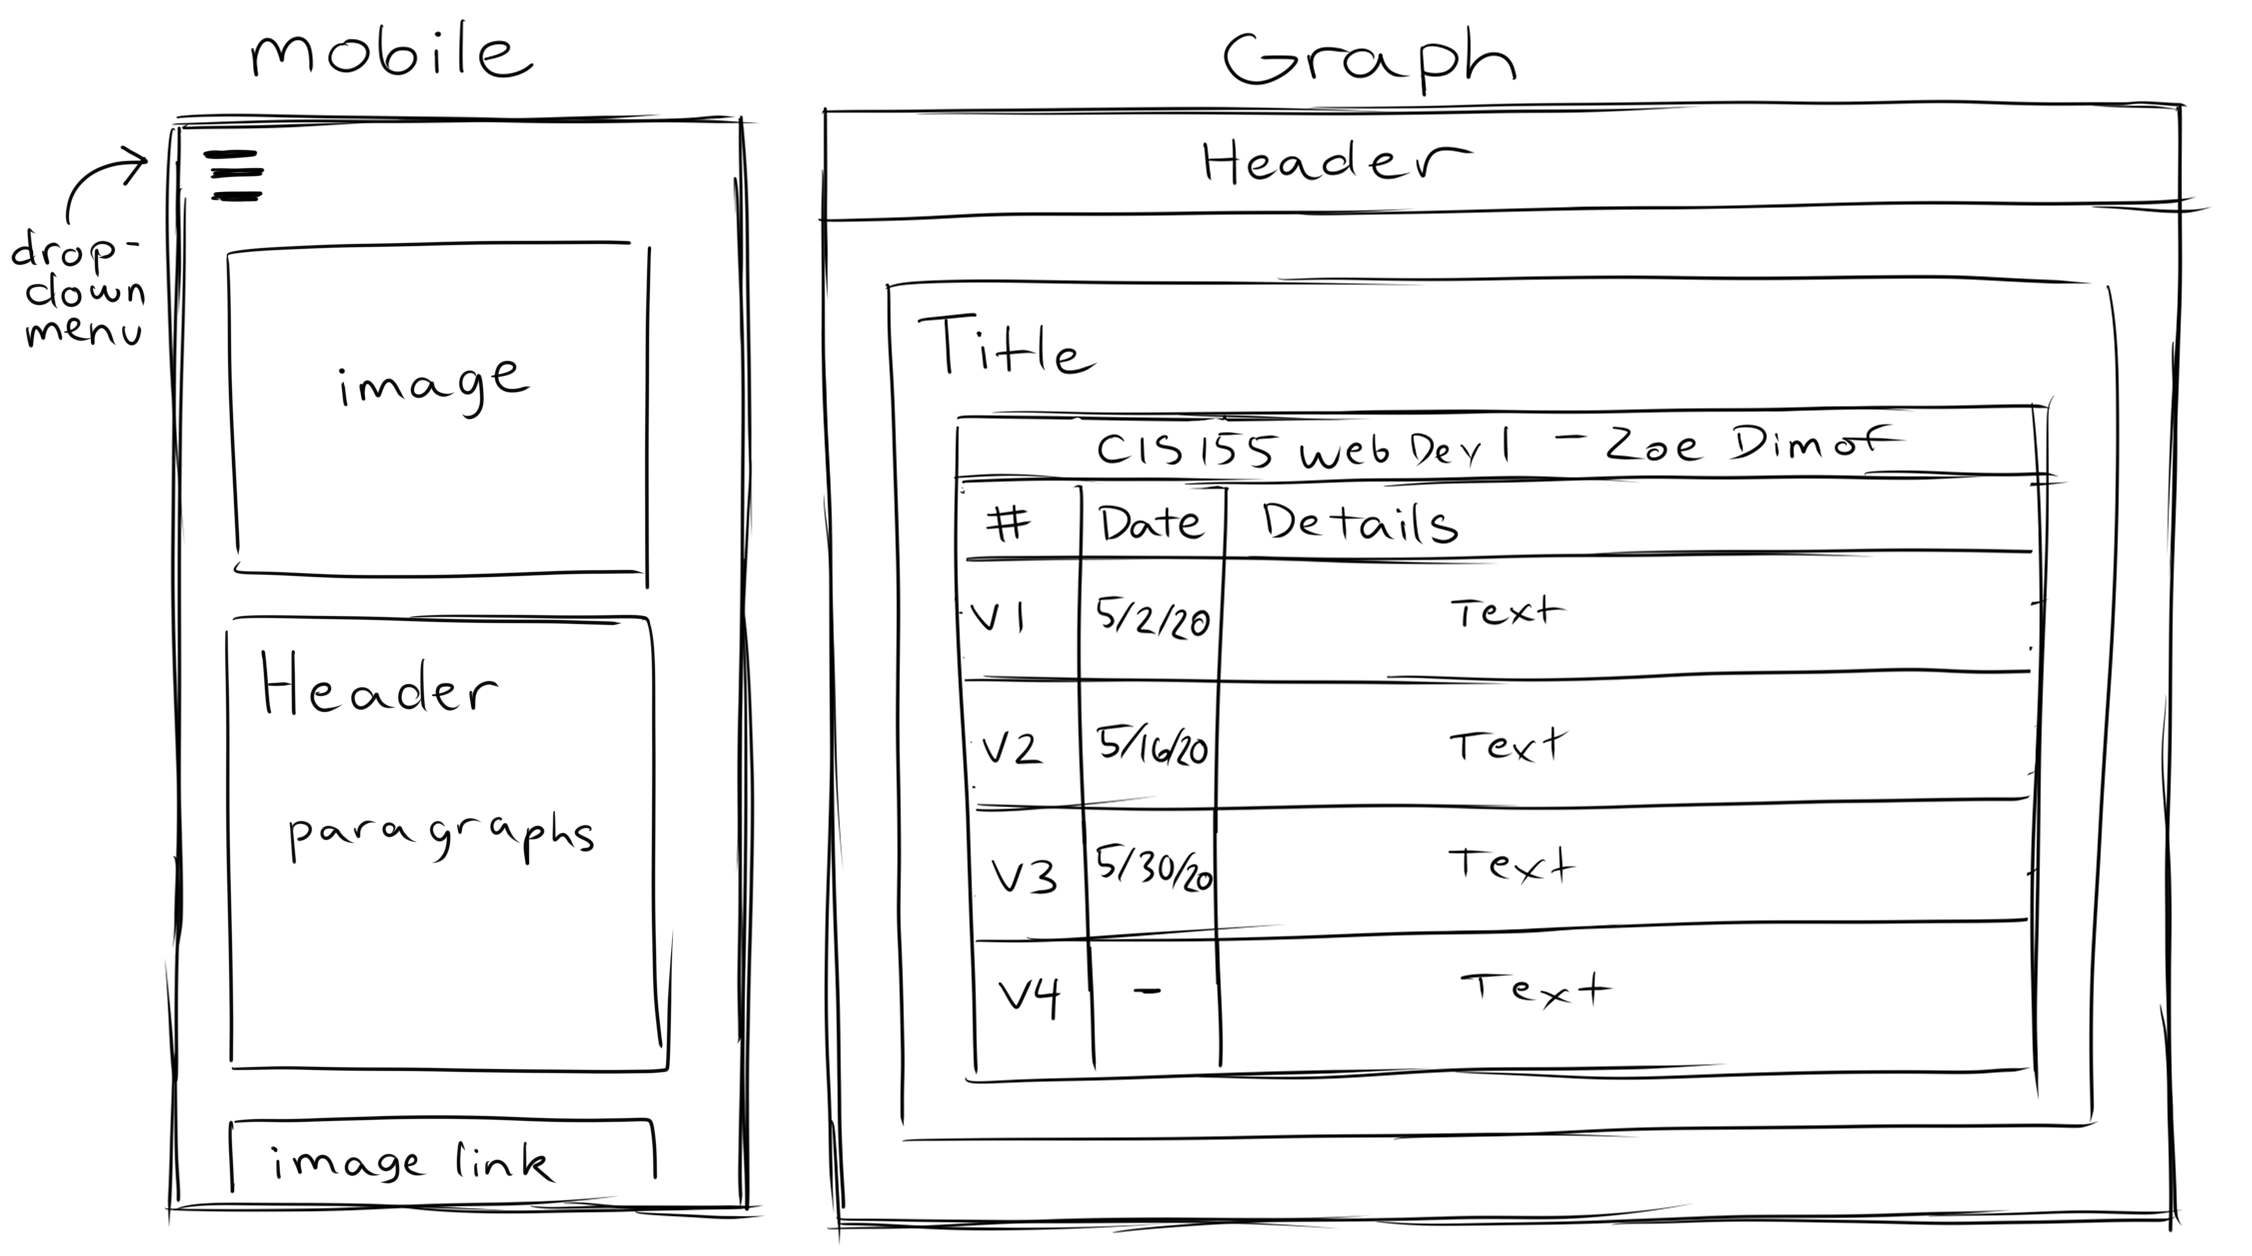 mobile
drop-
down
menu
image
Header
paragraphs
image link
Graph
Header
Title
CIS 155 Web Dev 1 - Zoe Dimof
# Date Details
V1 5/2/20 Text
V2 5/16/20 Text
V3 5/30/20 Text
V4 - Text